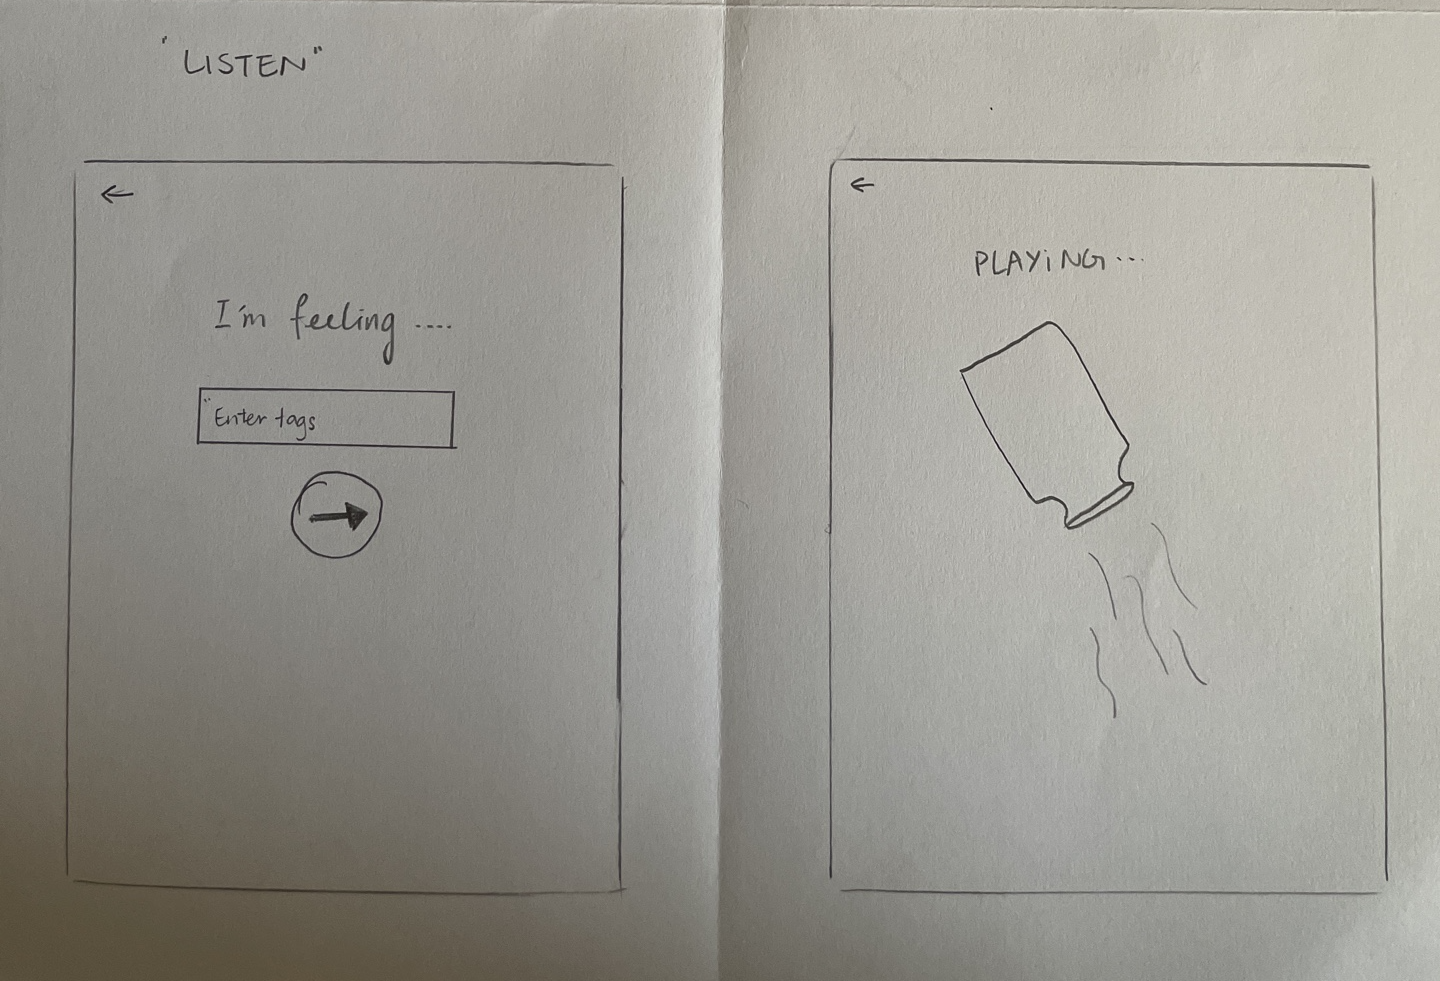 "LISTEN"
I'm feeling ....
"Enter tags
PLAYiNG...